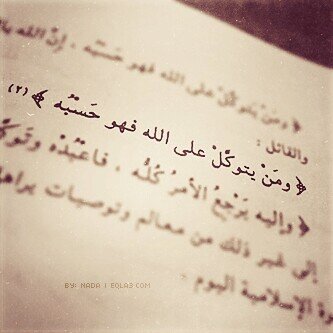 ﴿ ومَنْ يتوكَّلْ على الله فهو حَسْبُه ، إنَّ الله
والقائل :
﴿ ومَنْ يتوكَّلْ على الله فهو حَسْبُه ﴾ (٢)
﴿ وإليه يَرْجِعُ الأمرُ كُلُّه ، فاعْبُدْهُ وتَوكَّلْ
إلى غير ذلك من معالم وتوصيات
الإسلامية اليوم .
BY: NADA | EQLA3.COM